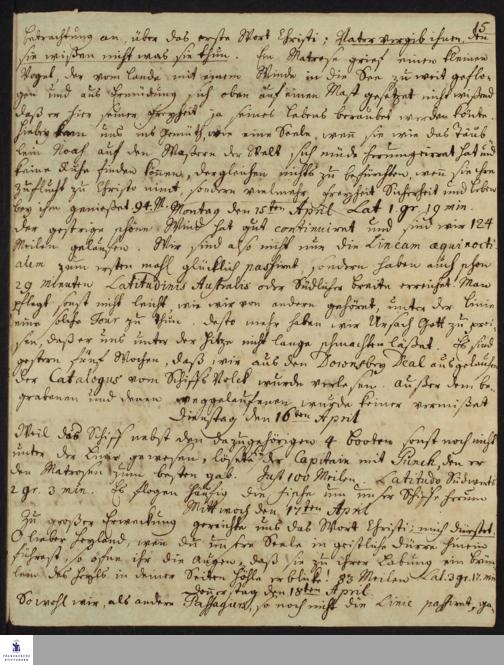 15
betrachtung an, über das erste Wort Christi: Vater vergib ihnen, den
sie wißen nicht was sie thun. Ein Matrose grief einen kleinen
Vogel, der vom Lande mit einem Winde in die See zu weit geflo-
gen und aus Ermüdung sich oben auf einen Mast gesetzet nicht wißend
daß er hier seiner Freyheit ja seines Lebens beraubet werden könte.
Hiebey kam uns ins Gemüth wie eine Seele, wenn sie wie das Täub
lein Noah auf den Waßern der Welt sich müde herumgeirret hat und
keine Ruhe finden können, dergleichen nichts zu befürchten, wenn sie ihre
Zuflucht zu Christo nimt, sondern vielmehr Freyheit Sicherheit und Leben
bey ihm genießet. 94. M. Montag den 15ten April Lat 1 gr. 19 min.
Der gestrige schöne Wind hat gut continuiret und sind wir 124
Meilen gelaufen. Wir sind also nicht nur die Lineam aequinocti-
alem zum ersten mahl glücklich passiret, sondern haben auch schon
29 minuten Latitudinis Australis oder Südlicher breite erreichet. Man
pflegt sonst nicht leicht wie wir von andern gehöret, unter der Linie
eine solche Tour zu thun. desto mehr haben wir Ursach Gott zu prei-
sen, daß er uns unter der Hitze nicht lange schmachten läßet. Es sind
gestern fünf Wochen, daß wir aus den Downs bey Deal ausgelaufen
der Catalogus vom Schiffs Volck wurde verlesen. Außer dem be-
grabenen und denen weggelaufenen wurde keiner vermißet
Dienstag den 16ten April
Weil das Schiff nebst den dazugehörigen 4 booten sonst noch nicht
unter der Linie gewesen, lösete der Capitain mit Punch, den er
den Matrosen zum besten gab. Just 100 Meilen. Latitudo Südwerts
2 gr. 3 min. Es flogen häufig die fische um unser Schiff herum
Mittwoch den 17ten April
Zu großer Erweckung gereichte uns das Wort Christi: mich dürstet.
O lieber Heyland, wen du unsere Seele in geistlich dürre hinein
führest, so öfne ihr die Augen, daß sie zu ihrer Labung ein brün
lein des Heyls in deiner Seiten Höhle erblicke! 83 Meilen Lat. 3 gr. 17. min
Donnerstag den 18ten April
So wohl wir, als andere Passagiers, so noch nicht die Linie passiret, ga-
FRANCKESCHE
STIFTUNGEN